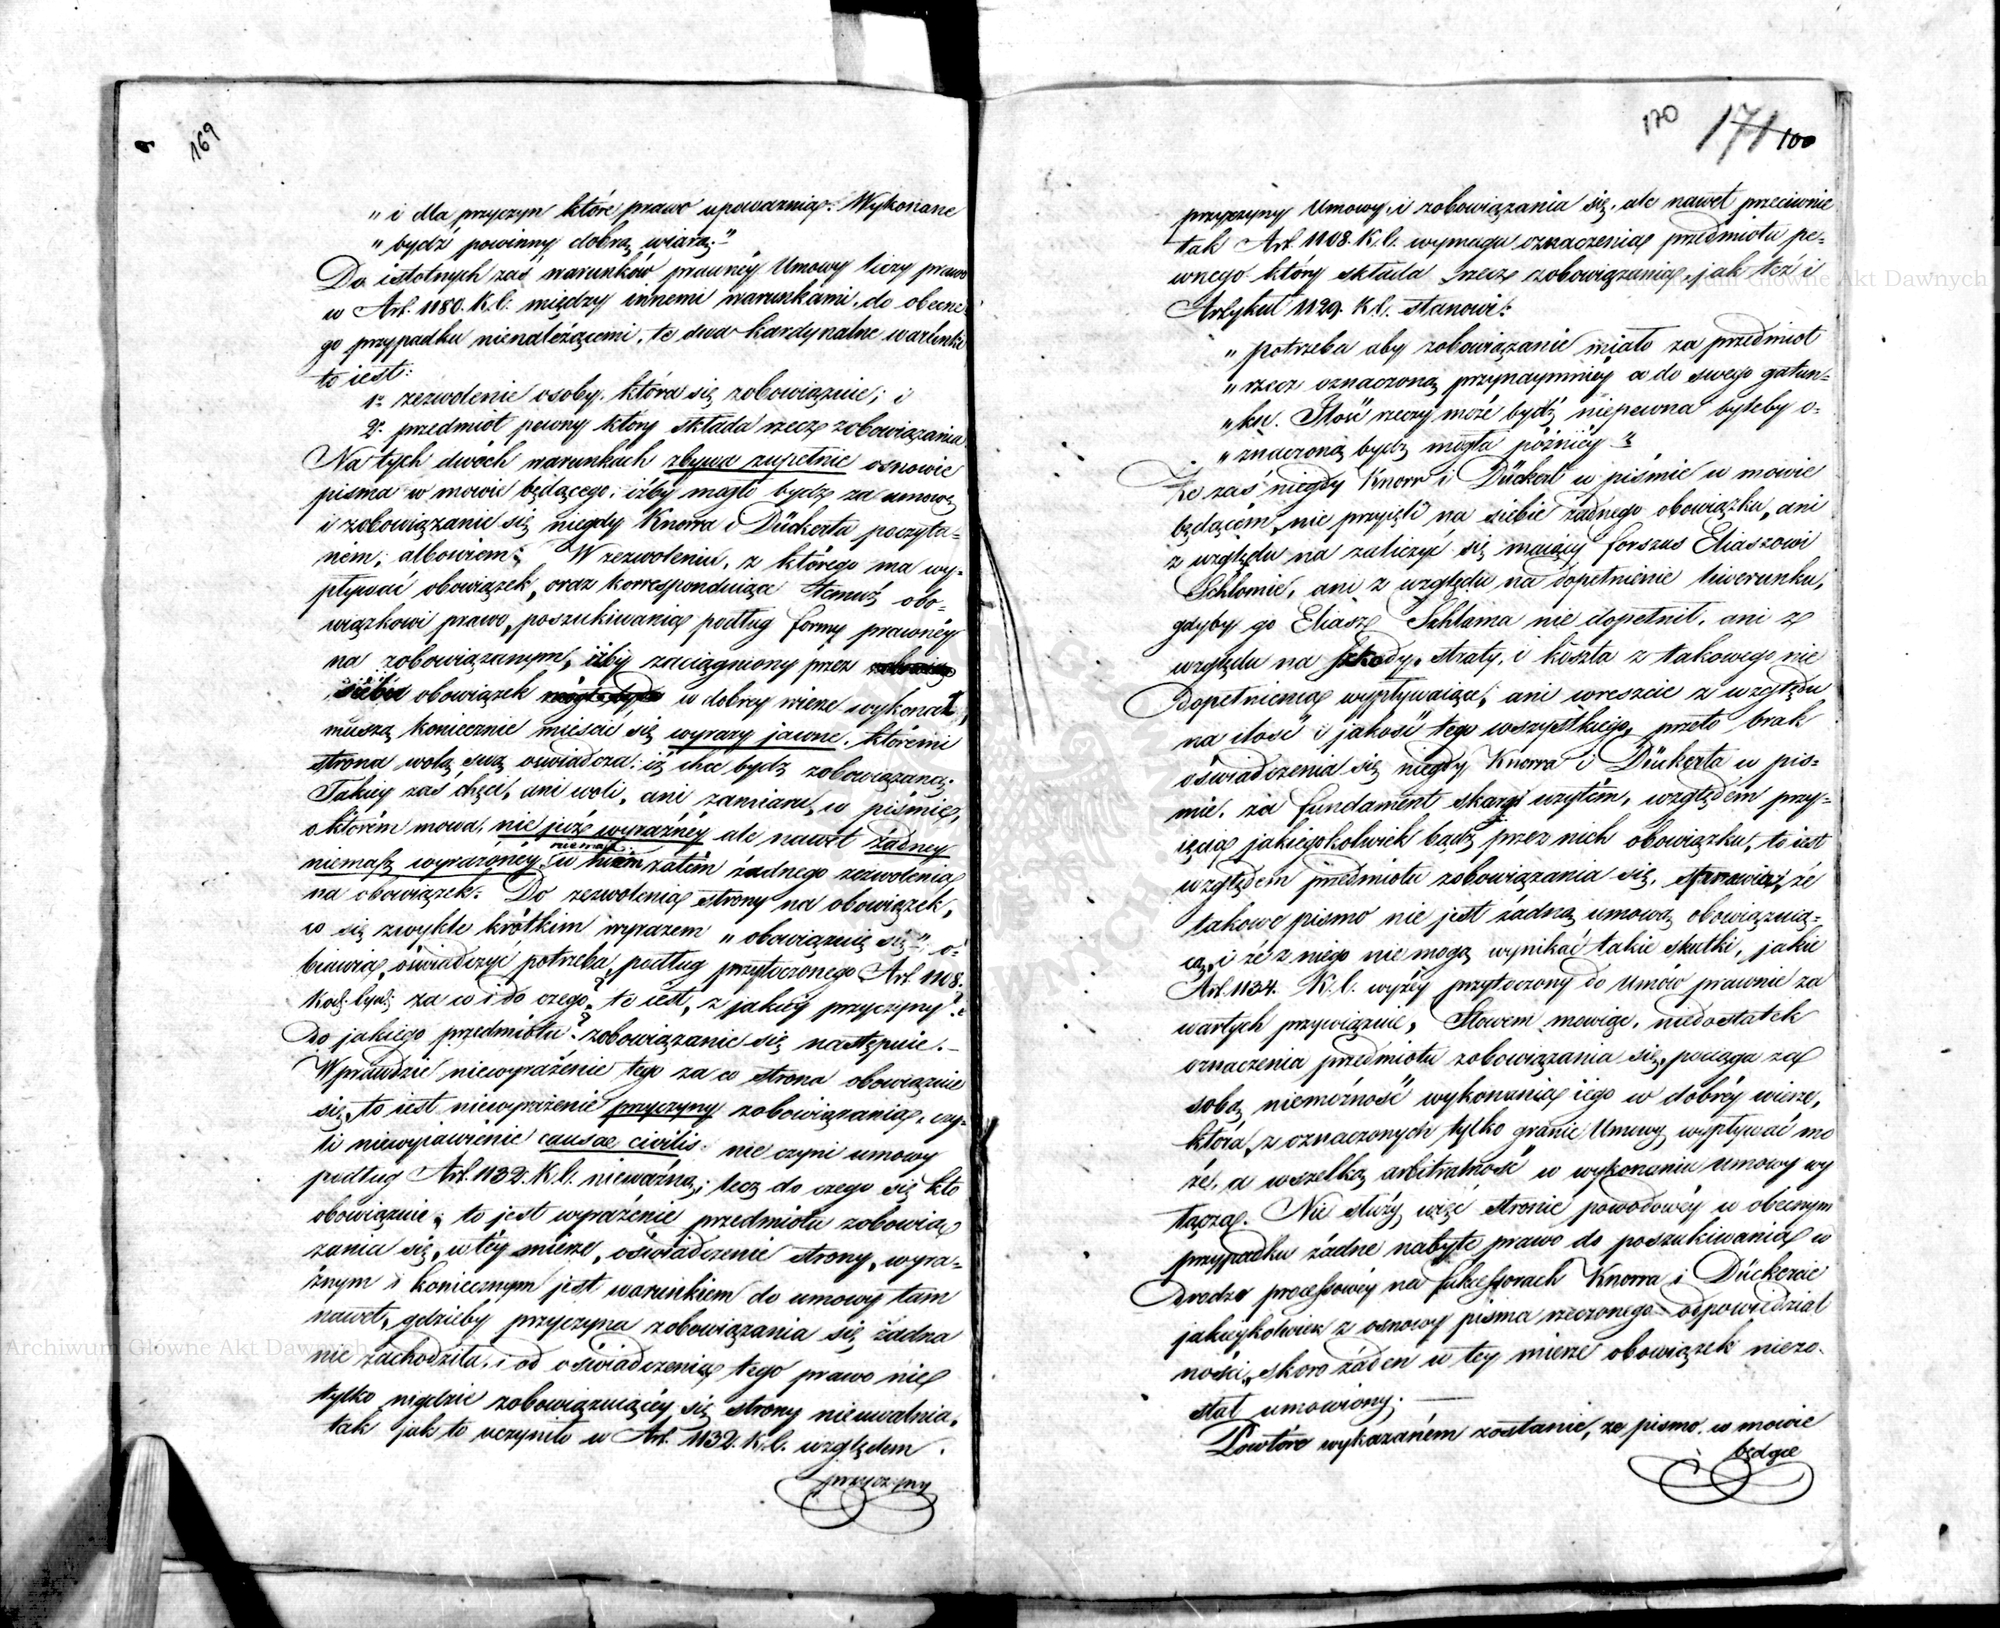 169
„ i dla przyczyn które prawo upoważnia. Wykonane
„ bydź powinny dobrą wiarą."
Do istotnych zaś warunków prawnéy Umowy liczy prawo
w Art. 1180. K.C. między innemi warunkami, do obecne
go przypadku nienależącemi, te dwa kardynalne warunki
to iest:
1o zezwolenie osoby, która się zobowiązuie; i
2o przedmiot pewny który składa rzecz zobowiązania
Na tych dwóch warunkach zbywa zupełnie osnowie
pisma w mowie będącego, iżby mogło bydź za umowę
i zobowiązanie się niegdy Knorra i Dückerta poczyta-
ném; albowiem: W zezwoleniu, z którego ma wy-
pływać obowiązek, oraz korresponduiące temuż obo-
wiązkowi prawo, poszukiwania podług formy prawnéy
na zobowiązanym, iżby zaciągniony przez
siebie obowiązek w dobrey wierze wykonał,
muszą koniecznie mieścić się wyrazy jawne, któremi
strona wolą swą oświadcza: iż chce bydź zobowiązaną.
Takiey zaś chęci, ani woli, ani zamiaru, w piśmie,
o którém mowa, nie już wyraźnéy ale nawet żadney
niemasz wyrażonéy,
niemasz
w niem zatém żadnego zezwolenia
na obowiązek. Do zezwolenia strony na obowiązek,
co się zwykle krótkim wyrazem „ obowiązuię się " o-
biawia, oświadczyć potrzeba, podług przytoczonego Art. 1108.
Kod: Cyw: za co i do czego? to iest, z jakiéy przyczyny? i
do jakiego przedmiotu? zobowiązanie się następuie.–
Wprawdzie niewyrażenie tego za co strona obowiązuie
się, to iest niewyrażenie przyczyny zobowiązania, czy-
li niewyiawienie causae civilis nie czyni umowy
podług Art. 1132. K.C. nieważną; lecz do czego się kto
obowiązuie; to jest wyrażenie przedmiotu zobowią
zania się, w téy mierze, oświadczenie strony, wyra-
źnym i koniecznym jest warunkiem do umowy tam
nawet, gdzieby przyczyna zobowiązania się żadna
nie zachodziła, i od oświadczenia tego prawo nie
tylko nigdzie zobowiązuiącéy się strony nieuwalnia,
tak jak to uczyniło w Art. 1132. K.C. względem
przyczyny
170 171 100
przyczyny Umowy i zobowiązania się, ale nawet przeciwnie
tak Art. 1108. K.C. wymaga oznaczenia przedmiotu pe-
wnego który składa rzecz zobowiązania, jak też i
Artykuł 1129. K.C. stanowi:
„ potrzeba aby zobowiązanie miało za przedmiot
„ rzecz oznaczoną przynaymniéy co do swego gatun-
„ ku. Ilość rzeczy może bydź niepewna byleby o-
„ znaczoną bydź mogła późniéy."
Że zaś niegdy Knorr i Dückert w piśmie w mowie
będącém, nie przyięli na siebie żadnego obowiązku, ani
z względu na zaliczyć się maiący forszus Eliaszowi
Schlomie, ani z względu na dopełnienie liwerunku,
gdyby go Eliasz Schlama nie dopełnił, ani z
względu na szkody, straty, i koszta z takowego nie
dopełnienia wypływaiące, ani wreszcie z względu
na ilość i jakość tego wszystkiego, przeto brak
oświadczenia się niegdy Knorra i Dückerta w piś-
mie, za fundament skargi wziętém, względem przy-
ięcia jakiegokolwiek bądź przez nich obowiązku, to iest
względem przedmiotu zobowiązania się, stanowi, że
takowe pismo nie jest żadną umową obowiązuią-
cą, i że z niego nie mogą wynikać takie skutki, jakie
Art. 1134. K.C. wyżéy przytoczony do Umów prawnie za
wartych przywiązuie, Słowem mówiąc, niedostatek
oznaczenia przedmiotu zobowiązania się, pociąga za
sobą niemożność wykonania iego w dobréy wierze,
która, z oznaczonych tylko granic Umowy wypływać mo
że, a wszelką arbitralność w wykonaniu umowy wy
łącza. Nie służy więc stronie powodowéy w obecnym
przypadku żadne nabyte prawo do poszukiwania w
drodze processowéy na sukcessorach Knorra i Dückercie
jakieykolwiek z osnowy pisma rzeczonego odpowiedzial
ności, skoro żaden w tey mierze obowiązek niezo-
stał umowiony. —
Powtóre wykazaném zostanie, że pismo, w mowie
będące